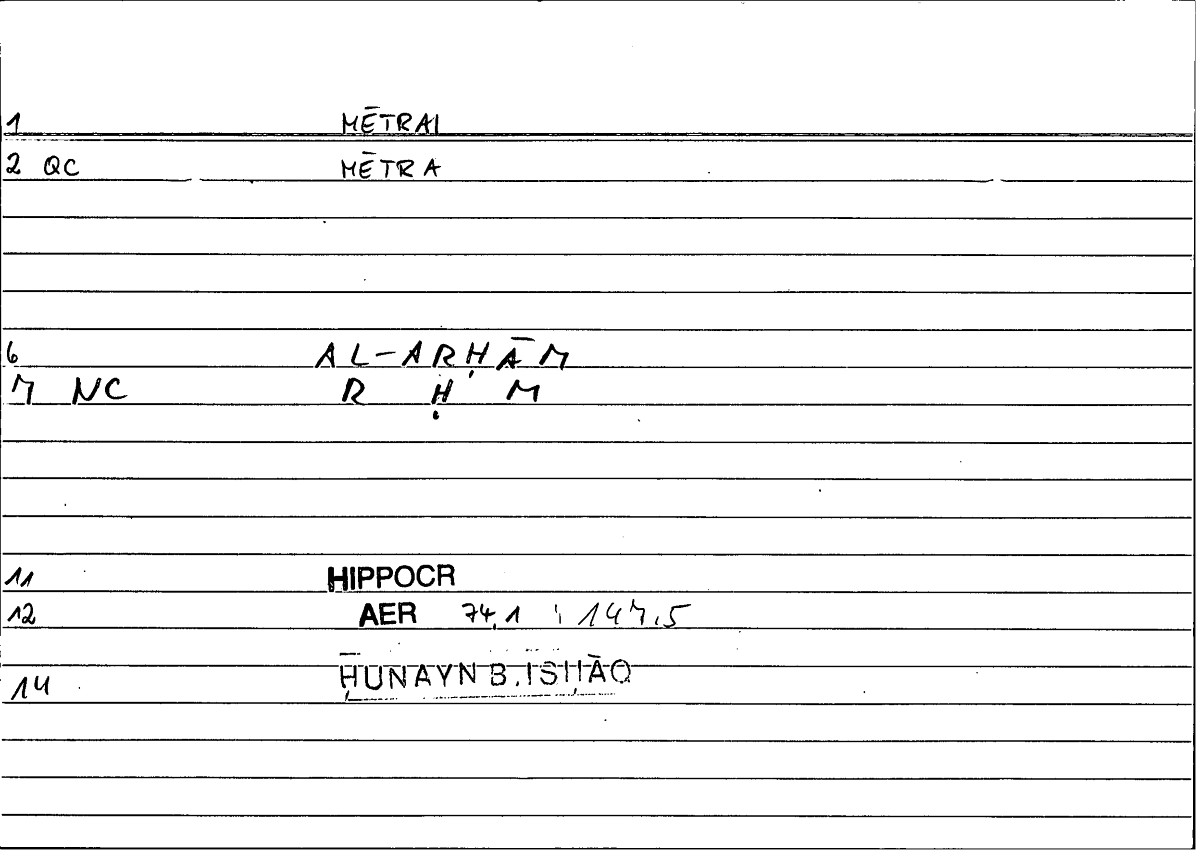 1 MĒTRAI
2 QC MĒTRA
6 AL-ARḤĀM
7 NC R Ḥ M
11 HIPPOCR
12 AER 74,1 ; 147,5
14 ḤUNAYN B. ISḤĀQ